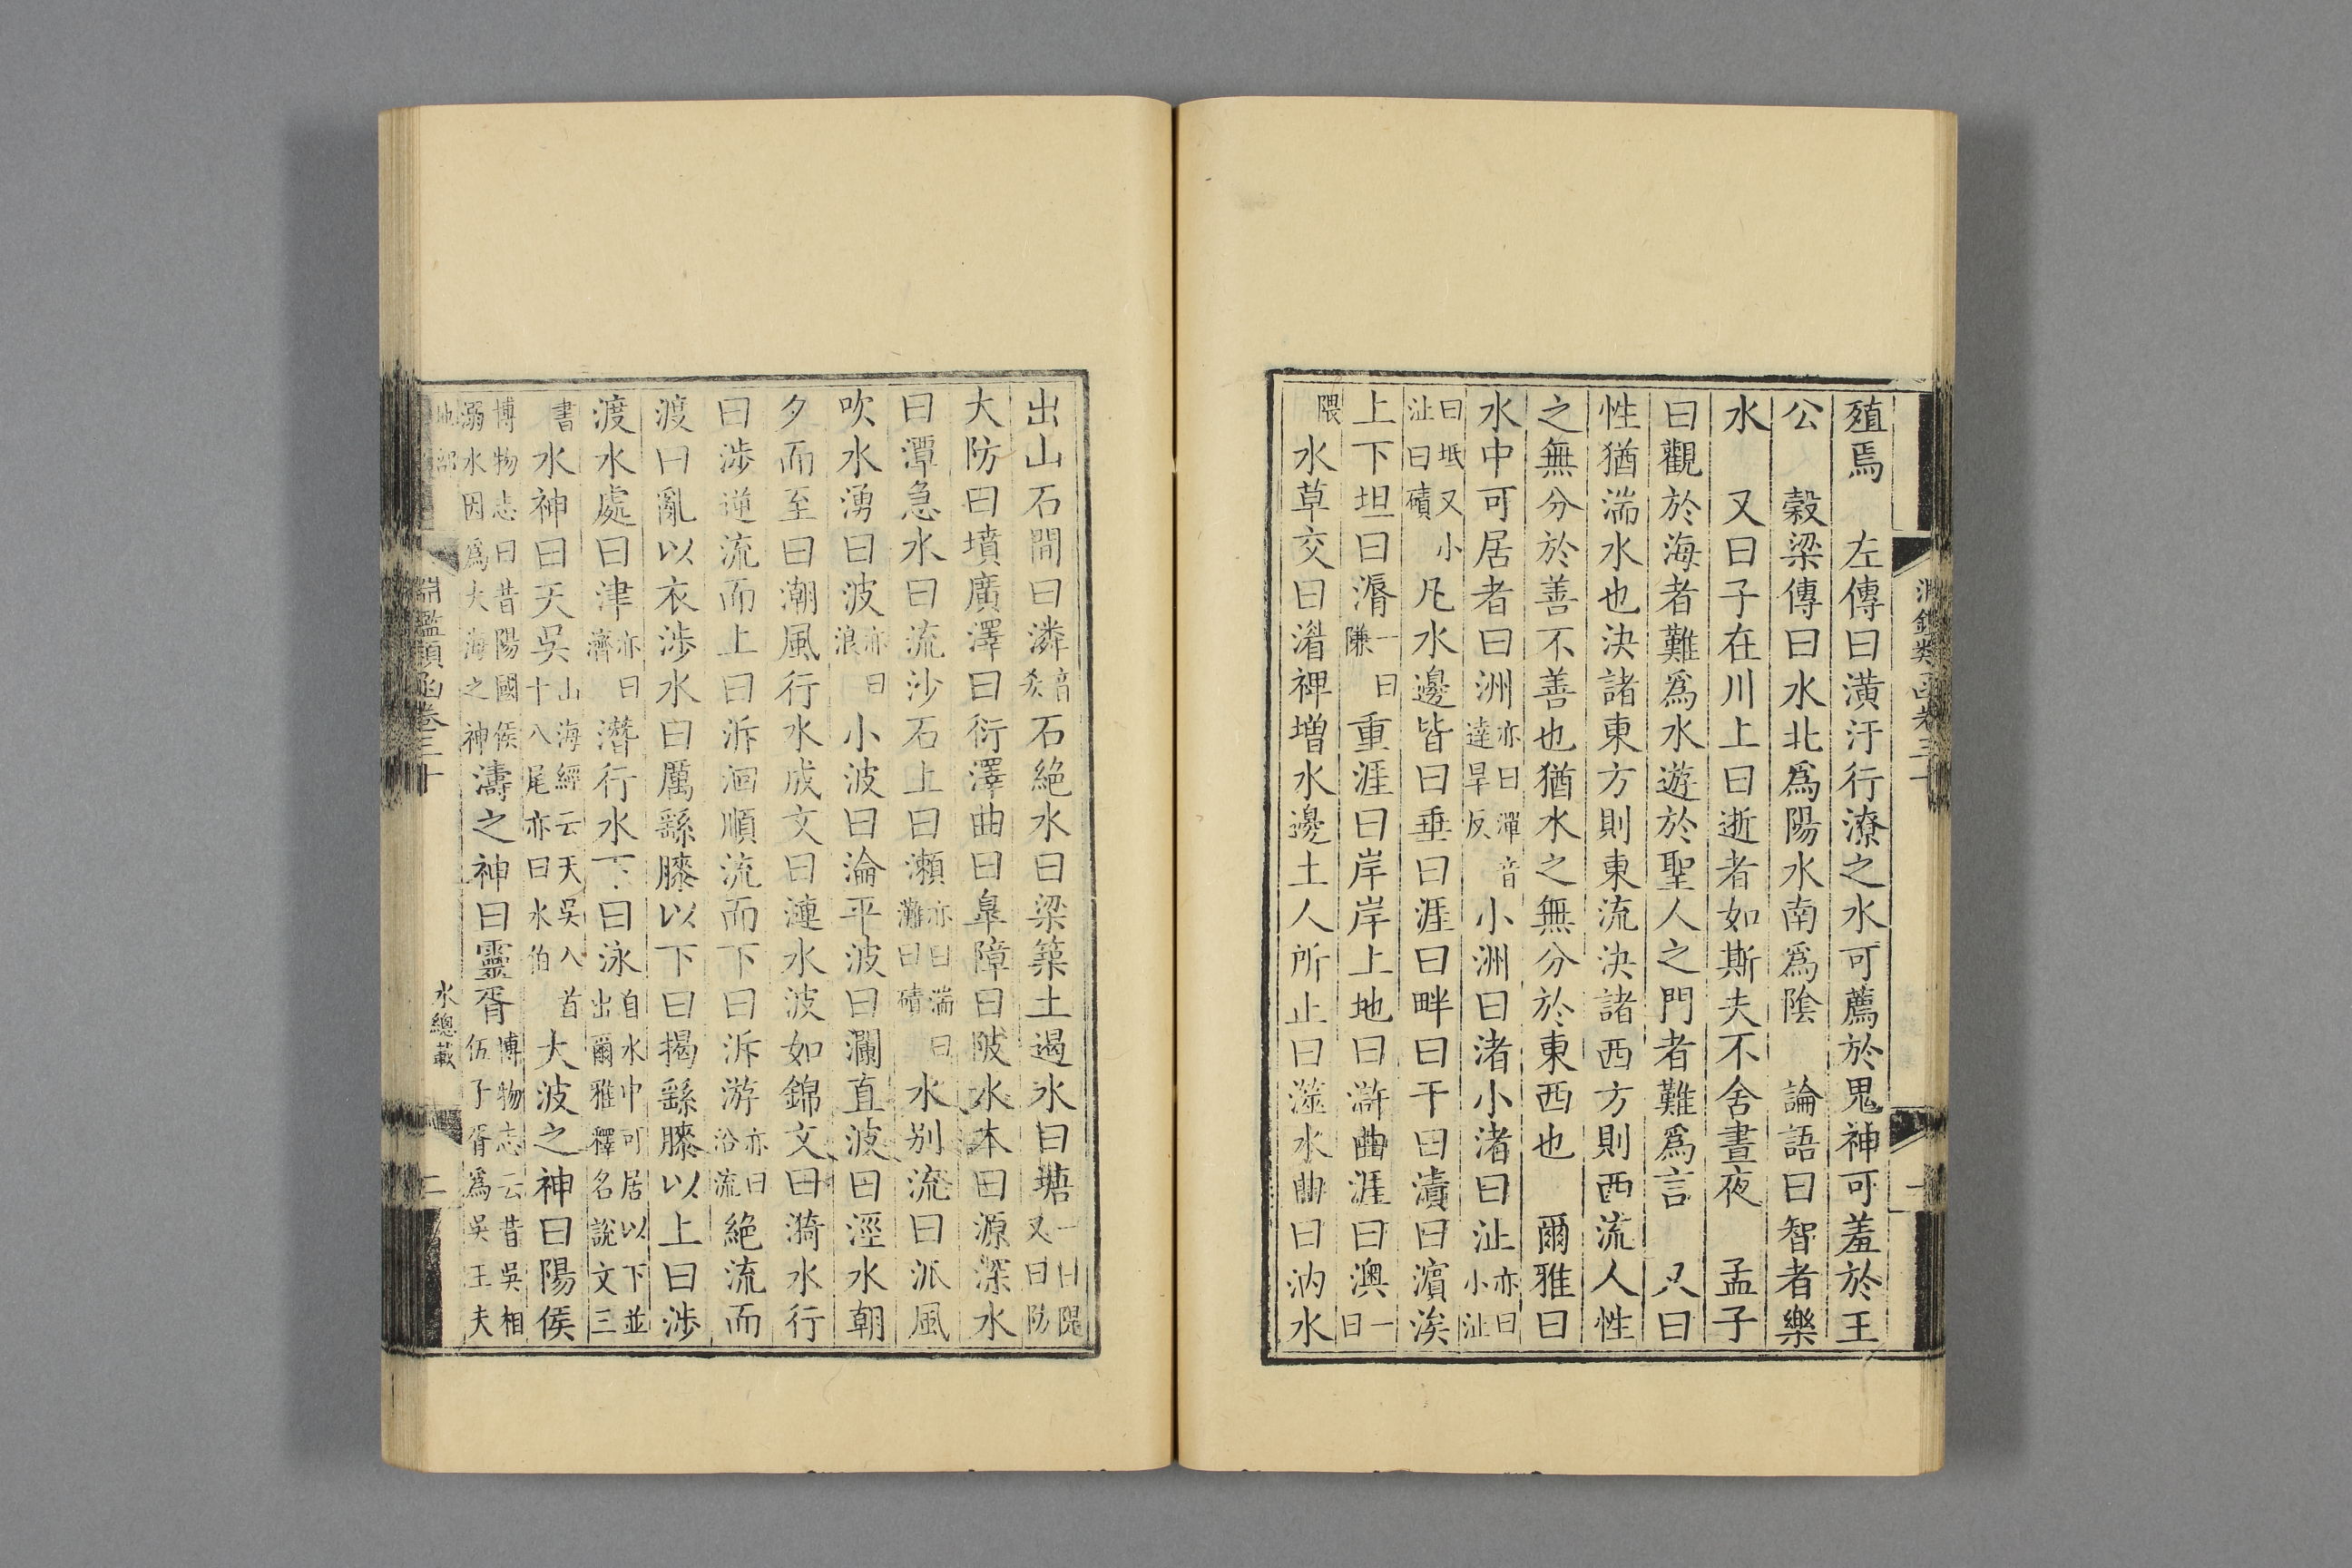 殖焉　左傳曰潢汙行潦之水可薦於鬼神可羞於王
公　穀梁傳曰水北爲陽水南爲陰　論語曰智者樂
水　又曰子在川上曰逝者如斯夫不舍晝夜　孟子
曰觀於海者難爲水遊於聖人之門者難爲言　又曰
性猶湍水也決諸東方則東流決諸西方則西流人性
之無分於善不善也猶水之無分於東西也　爾雅曰
水中可居者曰洲亦曰潬音達旱反小洲曰渚小渚曰沚亦曰小沚
曰坻又小沚曰磧凡水邊皆曰垂曰涯曰畔曰干曰濆曰濵涘
上下坦曰漘一曰隒重涯曰岸岸上地曰滸曲涯曰澳一曰
隈水草交曰湝裨增水邊土人所止曰澨水曲曰汭水
出山石間曰潾音㷠石絶水曰梁築土遏水曰塘一曰隄又曰防
大防曰墳廣澤曰衍澤曲曰臯障曰陂水本曰源深水
曰潭急水曰流沙石上曰瀨亦曰湍曰灘曰磧水别流曰派風
吹水湧曰波亦曰浪小波曰淪平波曰瀾直波曰涇水朝
夕而至曰潮風行水成文曰漣水波如錦文曰漪水行
曰涉逆流而上曰泝洄順流而下曰泝游亦曰沿流絶流而
渡曰亂以衣涉水曰厲繇膝以下曰揭繇膝以上曰涉
渡水處曰津亦曰濟潛行水下曰泳自水中可居以下並出爾雅釋名說文三
書水神曰天吳山海經云天吳八首十八尾亦曰水伯大波之神曰陽侯
博物志曰昔陽國侯溺水因爲大海之神濤之神曰靈胥博物志云昔吳相伍子胥爲吳王夫
淵鑑類函卷三十
水總載
二